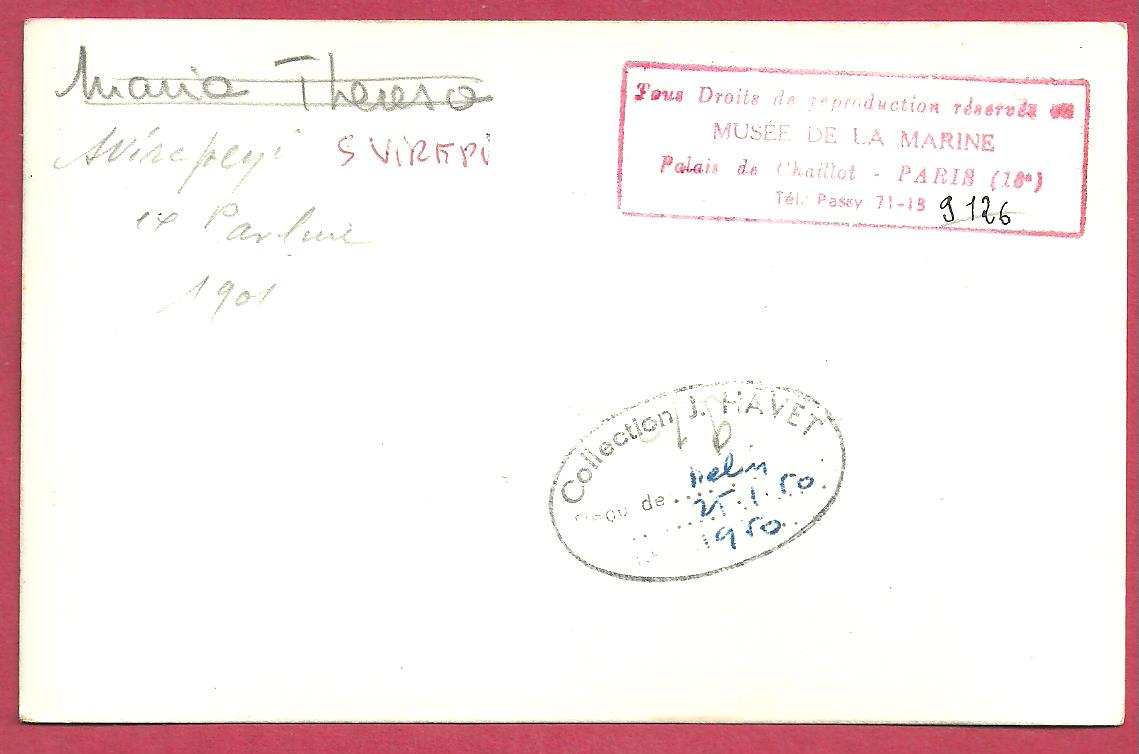 Maria Theresa
SVIREPI
ex
1901
Tous Droits de reproduction réservés
MUSÉE DE LA MARINE
Palais de Chaillot - PARIS (16e)
Tél.: Passy 71-13 9126
Collection J. HAVET
Reçu de
25.1.50
1950